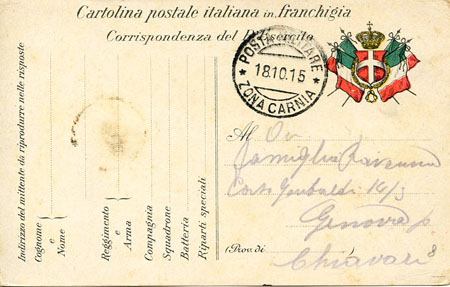 Cartolina postale italiana in franchigia
Corrispondenza del R. Esercito
POSTA MILITARE
18.10.15
ZONA CARNIA
Indirizzo del mittente da riprodurre nelle risposte
Cognome e Nome
Reggimento e Arma
Compagnia
Squadrone
Batteria
Riparti speciali
Al
Famiglia
Corso Garibaldi 14/3
Genova p
(Prov. di Chiavari